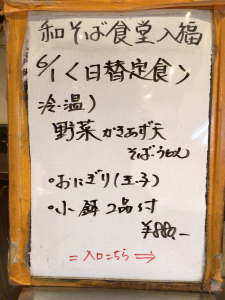 和そば食堂入福
6/1<日替定食>
冷・温)
野菜かきあげ天
そば・うどん
・おにぎり(玉子)
・小鉢2品付
¥880-
=入口こちら⇒